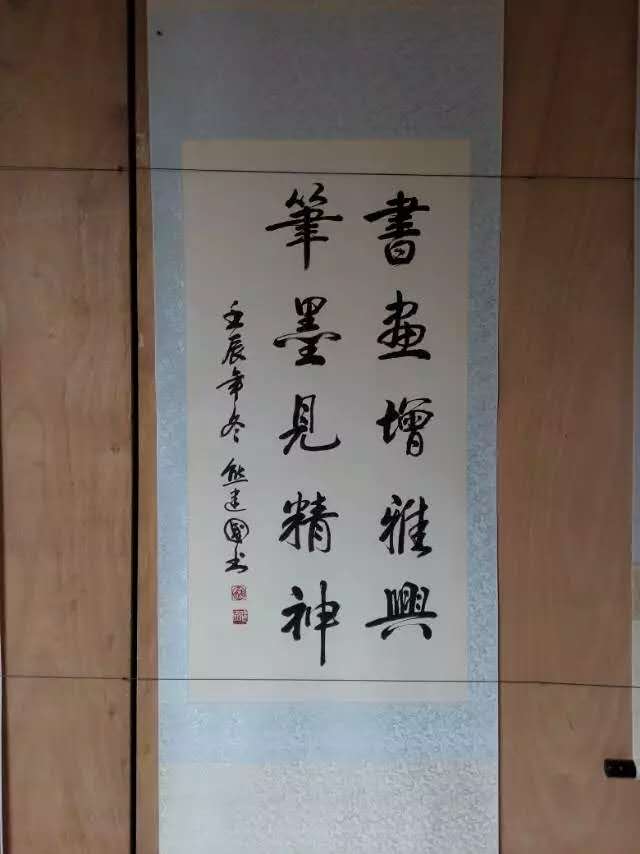 書畫增雅興
筆墨見精神
壬辰年冬 熊建國书